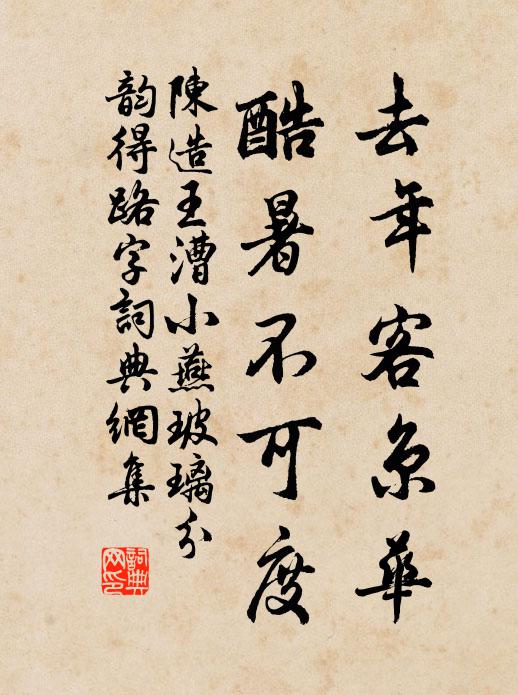 去年客京華
酷暑不可度
陳造王漕小燕玻璃分
韵得路字詞典網集
詞典
网印